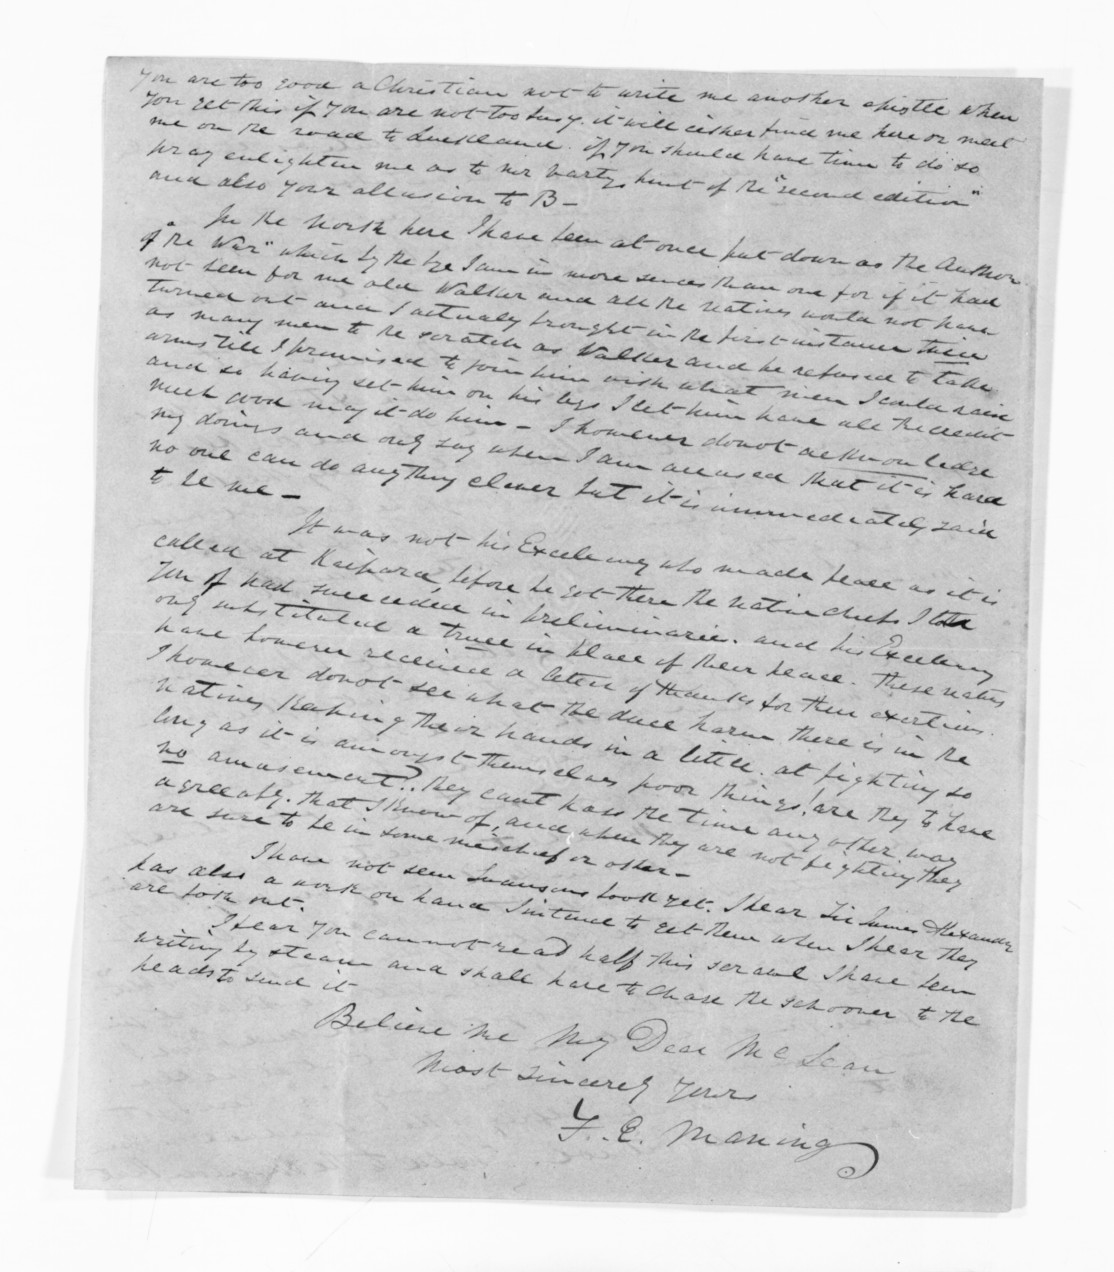 You are too good a Christian not to write me another epistle when
you get this if you are not too busy. it will either find me here or meet
me on the road to Auckland. if you should have time to do so
pray enlighten me as to hint of the "second edition"
and also your allusion to B –
In the North here I have been at once put down as the Author
of the War" which by the bye I am in more senses than one for if it had
not been for me old Walker and all the natives would not have
turned out and I actually brought in the first instance twice
as many men to the scratch as Walker and he refused to take
arms till I promised to join him with what men I could raise
and so having set him on his legs I let him have all the credit
much good may it do him – I however do not acknowledge
my doings and only say when I am accused that it is hard
no one can do anything clever but it is immediately said
to be me –
It was not his Excellency who made peace as it is
called at Kaipara, before he got there the native chiefs I told
you of had succeeded in preliminaries. and his Excellency
only substituted a truce in place of their peace. These natives
have however received a letter of thanks for their exertions.
I however do not see what the duce harm there is in the
natives keeping their hands in a little. at fighting so
long as it is amongst themselves poor things! are they to have
no amusement? they cant pass the time any other way
agreeably. that I know of, and when they are not fighting they
are sure to be in some mischief or other –
I have not seen Swansons book yet. I hear Sir James Alexander
has also a work on hand I intend to get them when I hear they
are both out.
I fear you cannot read half this scrawl I have been
writing by steam and shall have to chase the schooner to the
heads to send it
Believe me My Dear McLean
Most Sincerely Yours
F. E. Maning